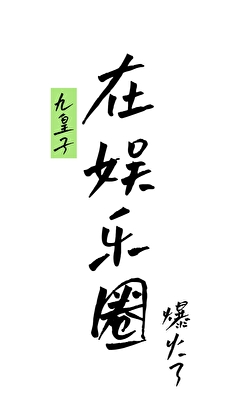 九皇子
在娱乐圈
爆火了